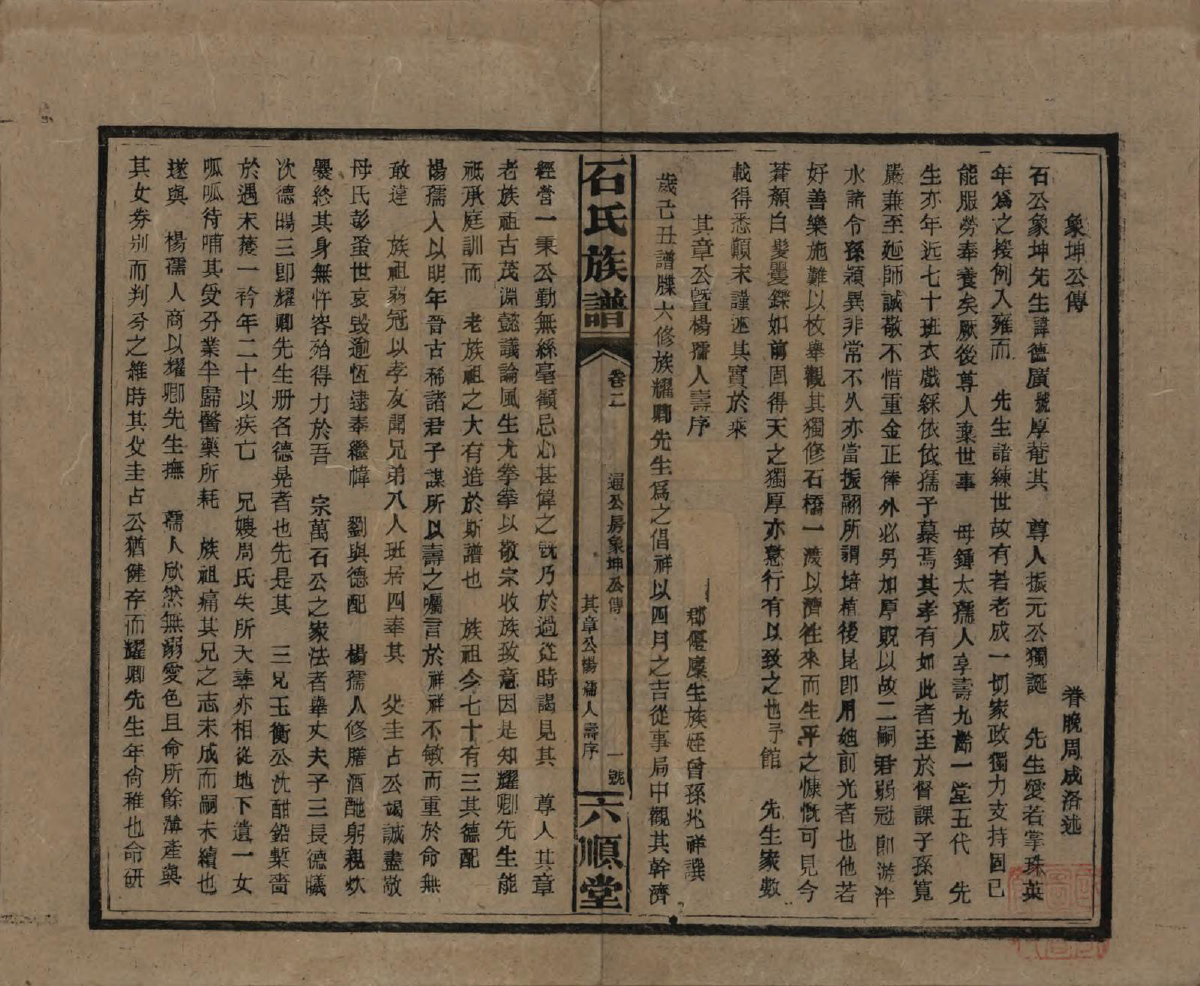 象坤公傳　眷晚周成洛述
石公象坤先生諱德廣號厚菴其　尊人振元公獨誕　先生愛若掌珠英
年爲之援例入雍而　先生諳練世故有若老成一切家政獨力支持固已
能服勞奉養矣厥後尊人棄世事　母鍾太孺人享壽九齡一堂五代　先
生亦年近七十班衣戲綵依依孺子慕焉其孝有如此者至於督課子孫寬
嚴兼至廵師誠敬不惜重金正俸外必另加厚贶以故二嗣君弱冠卽游泮
水諸令孫穎異非常不久亦當振翮所謂培植後昆卽用廸前光者也他若
好善樂施難以枚舉觀其獨修石橋一渡以濟徃來而生平之慷慨可見今
蒼顏白髮矍鑠如前固得天之獨厚亦意行有以致之也予館　先生家數
載得悉顛末謹述其實於來
其章公曁楊孺人壽序
郡優廩生族姪曾孫兆祥譔
歲己丑譜牒六修族耀卿先生爲之倡祥以四月之吉從事局中觀其幹濟
石氏族譜
卷二
遁公房象坤公傳
其章公楊孺人壽序
一號
六順堂
經營一秉公勤無絲毫顧忌心甚偉之旣乃於過從時謁見其　尊人其章
老族祖古茂淵懿議論風生尤拳拳以敬宗收族致意因是知耀卿先生能
祇承庭訓而　老族祖之大有造於斯譜也　族祖今七十有三其德配
楊孺人以明年晉古稀諸君子謀所以壽之囑言於祥祥不敏而重於命無
敢違　族祖弱冠以孝友聞兄弟八人班居四奉其　父圭占公竭誠盡敬
母氏彭蚤世哀毀逾恆逮奉繼幃　劉與德配　楊孺人修膳酒酏躬親炊
爨終其身無忤容殆得力於吾　宗萬石公之家法者畢丈夫子三長德曦
次德暘三卽耀卿先生册名德晃者也先是其　三兄玉衡公沈酣鉛槧嗇
於遇末蔆一衿年二十以疾亡　兄嫂周氏失所天葬亦相從地下遺一女
呱呱待哺其受分業半歸醫藥所耗　族祖痛其兄之志未成而嗣未續也
遂與　楊孺人商以耀卿先生撫　孺人欣然無溺愛色且命所餘薄產與
其女券別而判分之維時其父圭占公猶健存而耀卿先生年尙稚也命研